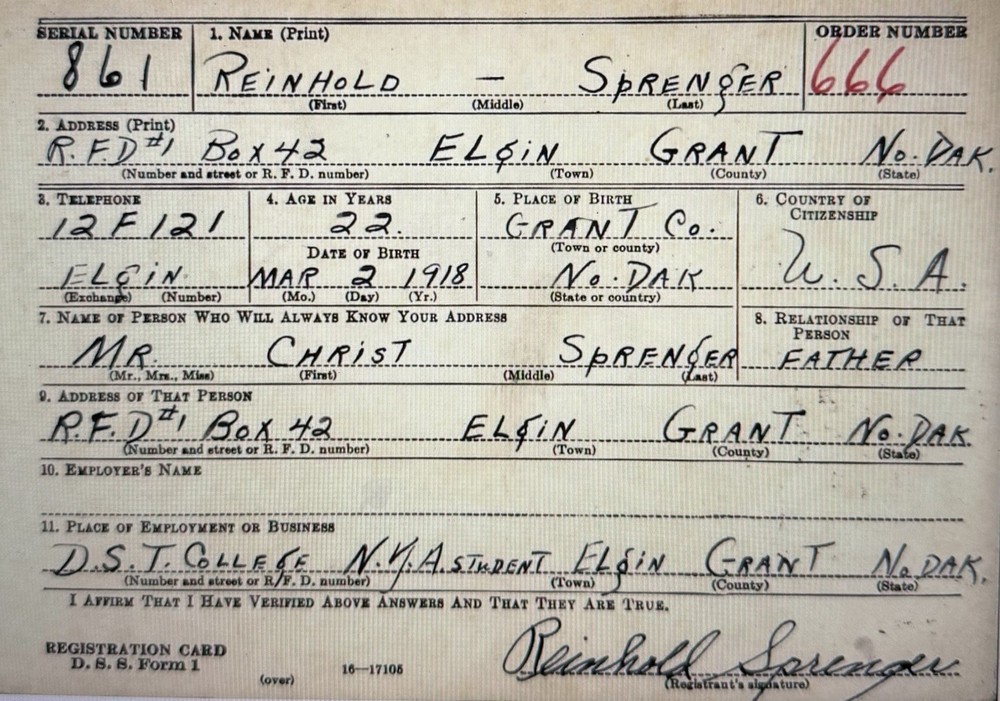 SERIAL NUMBER 1. NAME (Print) ORDER NUMBER
861 REINHOLD — SPRENGER 666
(First) (Middle) (Last)
2. ADDRESS (Print)
R.F.D #1 BOX 42 ELGIN GRANT NO. DAK.
(Number and street or R. F. D. number) (Town) (County) (State)
3. TELEPHONE 4. AGE IN YEARS 5. PLACE OF BIRTH 6. COUNTRY OF
CITIZENSHIP
12 F 121 22. GRANT CO.
(Town or county)
DATE OF BIRTH
ELGIN MAR 2 1918 NO. DAK U. S. A.
(Exchange) (Number) (Mo.) (Day) (Yr.) (State or country)
7. NAME OF PERSON WHO WILL ALWAYS KNOW YOUR ADDRESS 8. RELATIONSHIP OF THAT
PERSON
MR. CHRIST SPRENGER FATHER
(Mr., Mrs., Miss) (First) (Middle) (Last)
9. ADDRESS OF THAT PERSON
R.F.D #1 BOX 42 ELGIN GRANT NO. DAK.
(Number and street or R. F. D. number) (Town) (County) (State)
10. EMPLOYER'S NAME
11. PLACE OF EMPLOYMENT OR BUSINESS
D.S.T. COLLEGE N.Y.A STUDENT ELGIN GRANT NO DAK.
(Number and street or R. F. D. number) (Town) (County) (State)
I AFFIRM THAT I HAVE VERIFIED ABOVE ANSWERS AND THAT THEY ARE TRUE.
REGISTRATION CARD
D. S. S. Form 1 16—17105 Reinhold Sprenger
(over) (Registrant's signature)